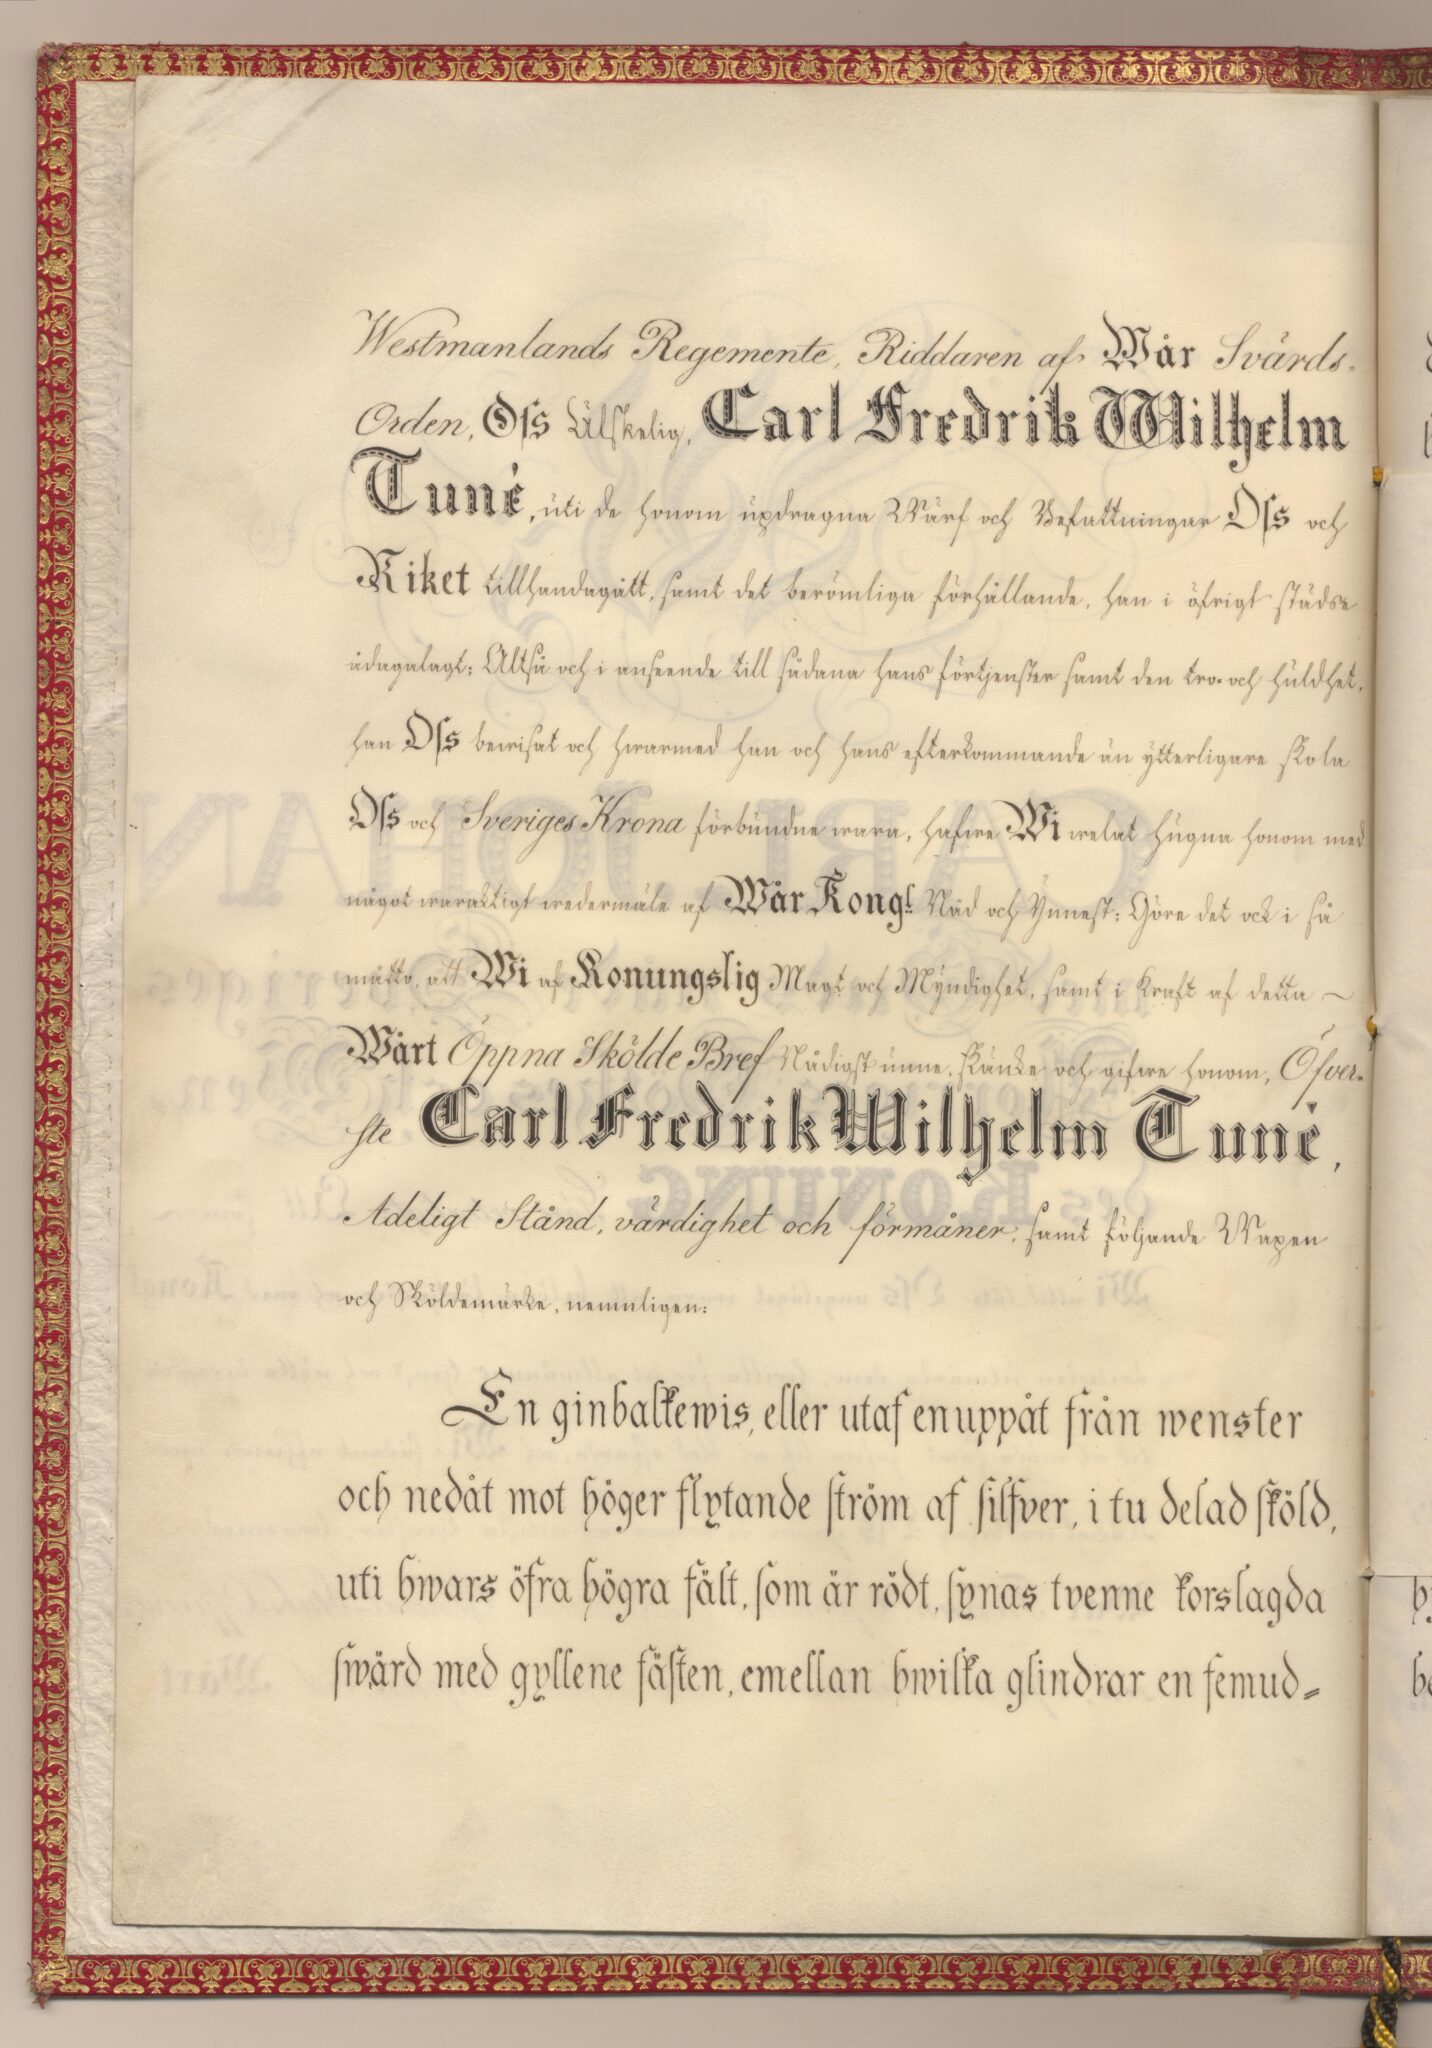 Westmanlands Regemente, Riddaren af Wår Svärds-
Orden, Oſs Älskelig, Carl Fredrik Wilhelm
Tuné, uti de honom updragna Wärf och Befattningar Oſs och
Riket tillhandagått, samt det berömliga förhållande, han i öfrigt städse
ådagalagt; Altså och i anseende till sådana hans förtjenster samt den tro- och huldhet,
han Oſs bewisat och hwarmed han och hans efterkommande än ytterligare skola
Oſs och Sveriges Krona förbundne wara, hafwe Wi welat hugna honom med
något waraktigt wedermäle af Wår Kongl. Nåd och Ynnest; Göre det ock i så
måtto, att Wi af Konungslig Magt och Myndighet, samt i Kraft af detta —
Wårt Öppna Skölde Bref Nådigst unne, skänke och gifwe honom, Öfver-
ste Carl Fredrik Wilhelm Tuné,
Adeligt Stånd, värdighet och förmåner, samt följande Wapen
och Sköldemärke, nemnligen:
En ginbalkewis, eller utaf en uppåt från wenster
och nedåt mot höger flytande ström af silfver, i tu delad sköld,
uti hwars öfra högra fält, som är rödt, synas tvenne korslagda
swärd med gyllene fästen, emellan hwilka glindrar en femud=